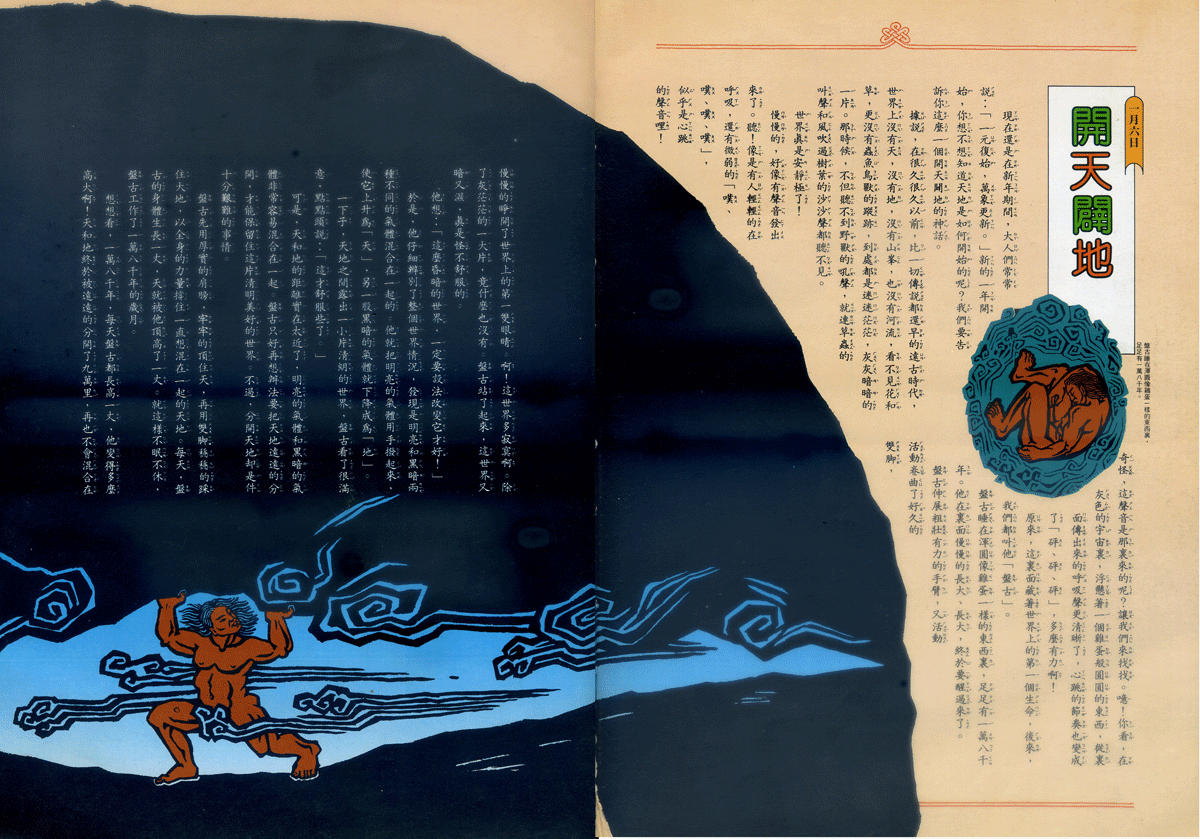 一月六日
開天闢地
現在還是在新年期間,大人們常常
說:「一元復始,萬象更新。」新的一年開
始,你想不想知道天地是如何開始的呢?我們要告
訴你這麼一個開天闢地的神話。
據說,在很久很久以前,比一切傳說都還早的遠古時代,
世界上沒有天,沒有地,沒有山峯,也沒有河流,看不見花和
草,更沒有蟲魚鳥獸的蹤跡,到處都是迷迷茫茫、灰灰暗暗的
一片。那時候,不但聽不到野獸的吼聲,就連草蟲的
叫聲和風吹過樹葉的沙沙聲都聽不見。
世界真是安靜極了!
慢慢的,好像有聲音發出
來了。聽!像是有人輕輕的在
呼吸,還有微弱的「噗、
噗、噗、噗」,
似乎是心跳
的聲音哩!
盤古睡在渾圓像雞蛋一樣的東西裏,
足足有一萬八千年。
奇怪,這聲音是那裏來的呢?讓我們來找找。噫!你看,在
灰色的宇宙裏,浮懸著一個雞蛋般圓圓的東西,從裏
面傳出來的呼吸聲更清晰了,心跳的節奏也變成
了「砰、砰、砰」,多麼有力啊!
原來,這裏面藏著世界上的第一個生命,後來,
我們都叫他「盤古」。
盤古睡在渾圓像雞蛋一樣的東西裏,足足有一萬八千
年。他在裏面慢慢的長大、長大,終於要醒過來了。
盤古伸展粗壯有力的手臂,又活動
活動卷曲了好久的
雙腳,
慢慢的睜開了世界上的第一雙眼睛。啊!這世界多寂寞啊!除
了灰茫茫的一大片,竟什麼也沒有。盤古站了起來,這世界又
暗又濕,真是怪不舒服的。
他想:「這麼昏暗的世界,一定要設法改變它才好!」
於是,他仔細辨別了整個世界情況,發現是明亮和黑暗兩
種不同的氣體混合在一起的。他就把明亮的氣體用手撥起來,
使它上升爲「天」,另一股黑暗的氣體就下降成爲「地」。
一下子,天地之間露出一小片清朗的世界,盤古看了很滿
意,點點頭說:「這才舒服些了。」
可是,天和地的距離實在太近了,明亮的氣體和黑暗的氣
體非常容易混合在一起。盤古只好再想辦法要把天地遠遠的分
開,才能保留住這片清明美好的世界。不過,分開天地却是件
十分艱難的事情。
盤古先用厚實的肩膀,牢牢的頂住天,再用雙脚穩穩的踩
住大地,以全身的力量撐住一直想混在一起的天地。每天,盤
古的身體生長一丈,天就被他頂高了一丈。就這樣不眠不休,
盤古工作了一萬八千年的歲月。
想想看,一萬八千年,每天盤古都長高一丈,他變得多麼
高大啊!天和地終於被遠遠的分開了九萬里,再也不會混合在